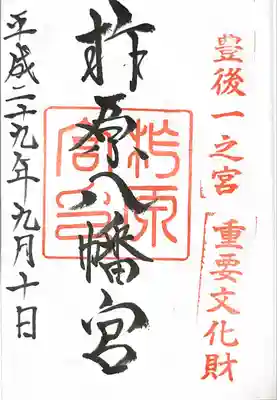 豊後一之宮 重要文化財
柞原八幡宮
平成二十九年九月十日